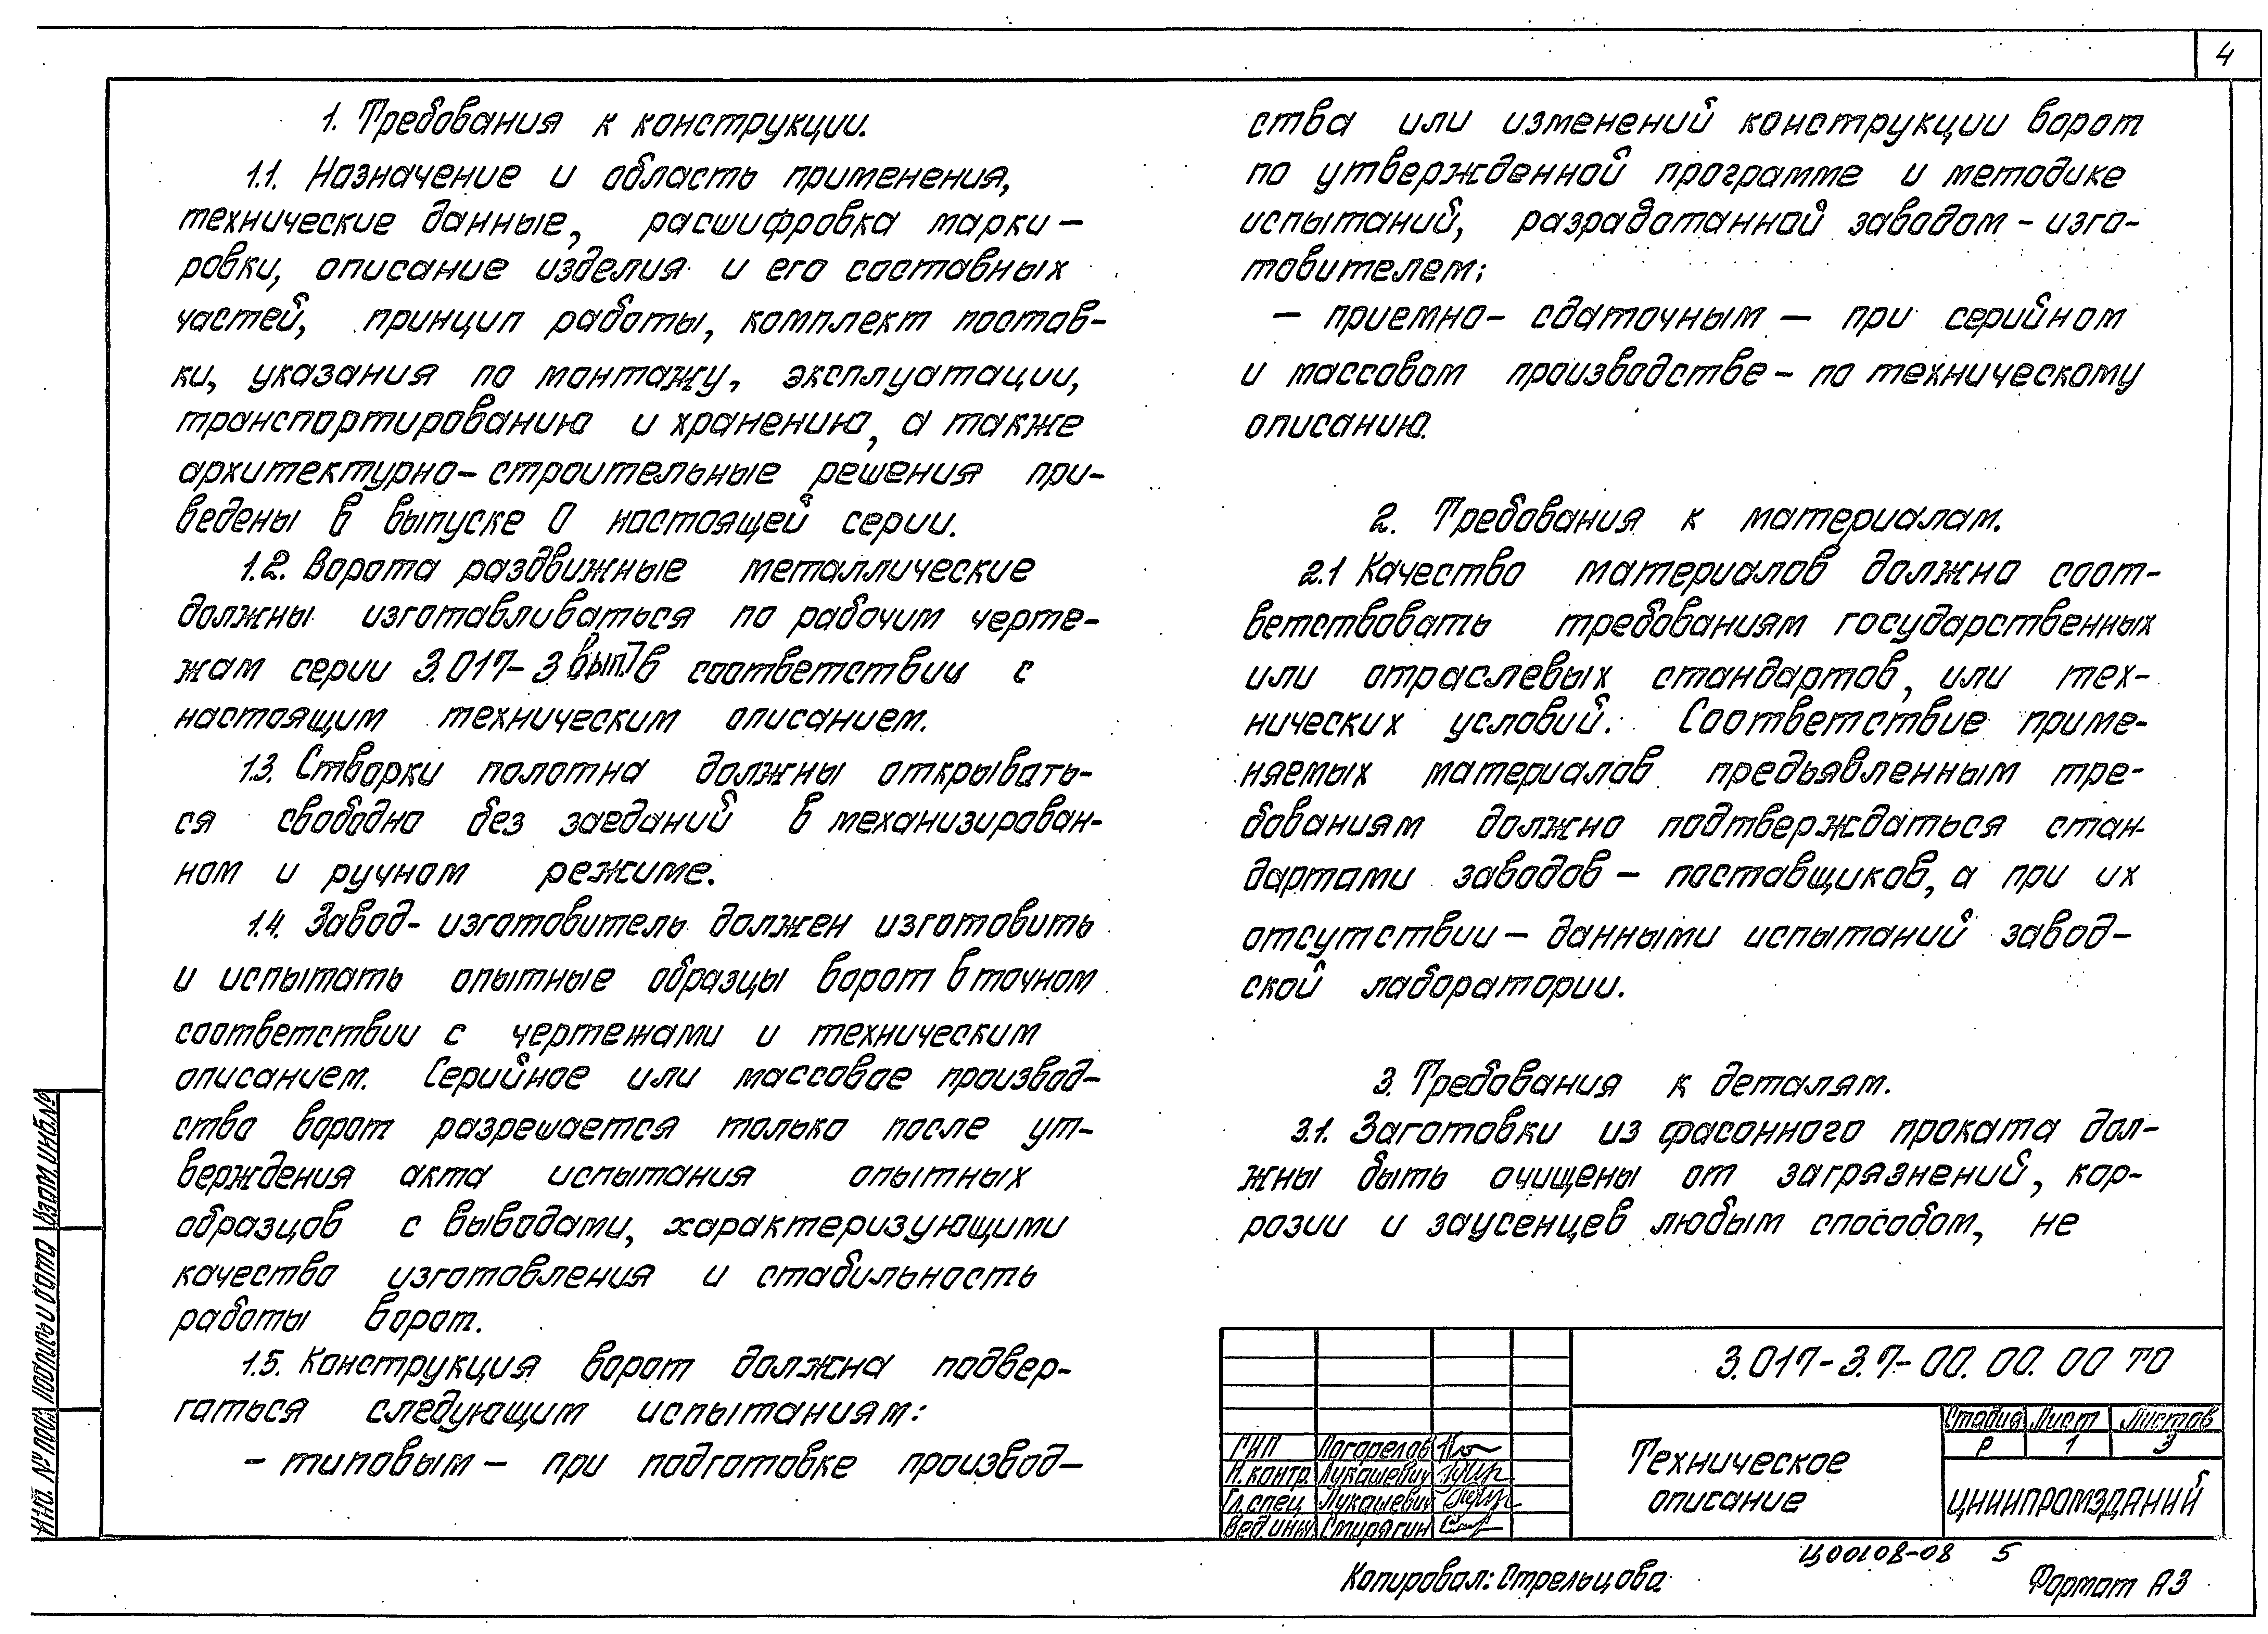 4
1. Требования к конструкции.
1.1. Назначение и область применения,
технические данные, расшифровка марки-
ровки, описание изделия и его составных
частей, принцип работы, комплект постав-
ки, указания по монтажу, эксплуатации,
транспортированию и хранению, а также
архитектурно-строительные решения при-
ведены в выпуске 0 настоящей серии.
1.2. Ворота раздвижные металлические
должны изготавливаться по рабочим черте-
жам серии 3.017-3 вып.7 в соответствии с
настоящим техническим описанием.
1.3. Створки полотна должны открывать-
ся свободно без заеданий в механизирован-
ном и ручном режиме.
1.4. Завод-изготовитель должен изготовить
и испытать опытные образцы ворот в точном
соответствии с чертежами и техническим
описанием. Серийное или массовое производ-
ство ворот разрешается только после ут-
верждения акта испытания опытных
образцов с выводами, характеризующими
качество изготовления и стабильность
работы ворот.
1.5. Конструкция ворот должна подвер-
гаться следующим испытаниям:
- типовым - при подготовке производ-
ства или изменений конструкции ворот
по утвержденной программе и методике
испытаний, разработанной заводом-изго-
товителем;
- приемно-сдаточным - при серийном
и массовом производстве - по техническому
описанию.
2. Требования к материалам.
2.1 Качество материалов должно соот-
ветствовать требованиям государственных
или отраслевых стандартов, или тех-
нических условий. Соответствие приме-
няемых материалов предъявленным тре-
бованиям должно подтверждаться стан-
дартами заводов-поставщиков, а при их
отсутствии - данными испытаний завод-
ской лаборатории.
3. Требования к деталям.
3.1. Заготовки из фасонного проката дол-
жны быть очищены от загрязнений, кор-
розии и заусенцев любым способом, не
3.017-3.7-00.00.00 ТО
ГИП Погорелов
Н.контр. Лукашевич
Гл.спец Лукашевич
Вед.инж Стирягин
Техническое
описание
Стадия Лист Листов
Р 1 3
ЦНИИПРОМЗДАНИЙ
Ц00108-08 5
Копировал: Стрельцова
Формат А3
Взам.инв.№
Подпись и дата
Инв. № подл.